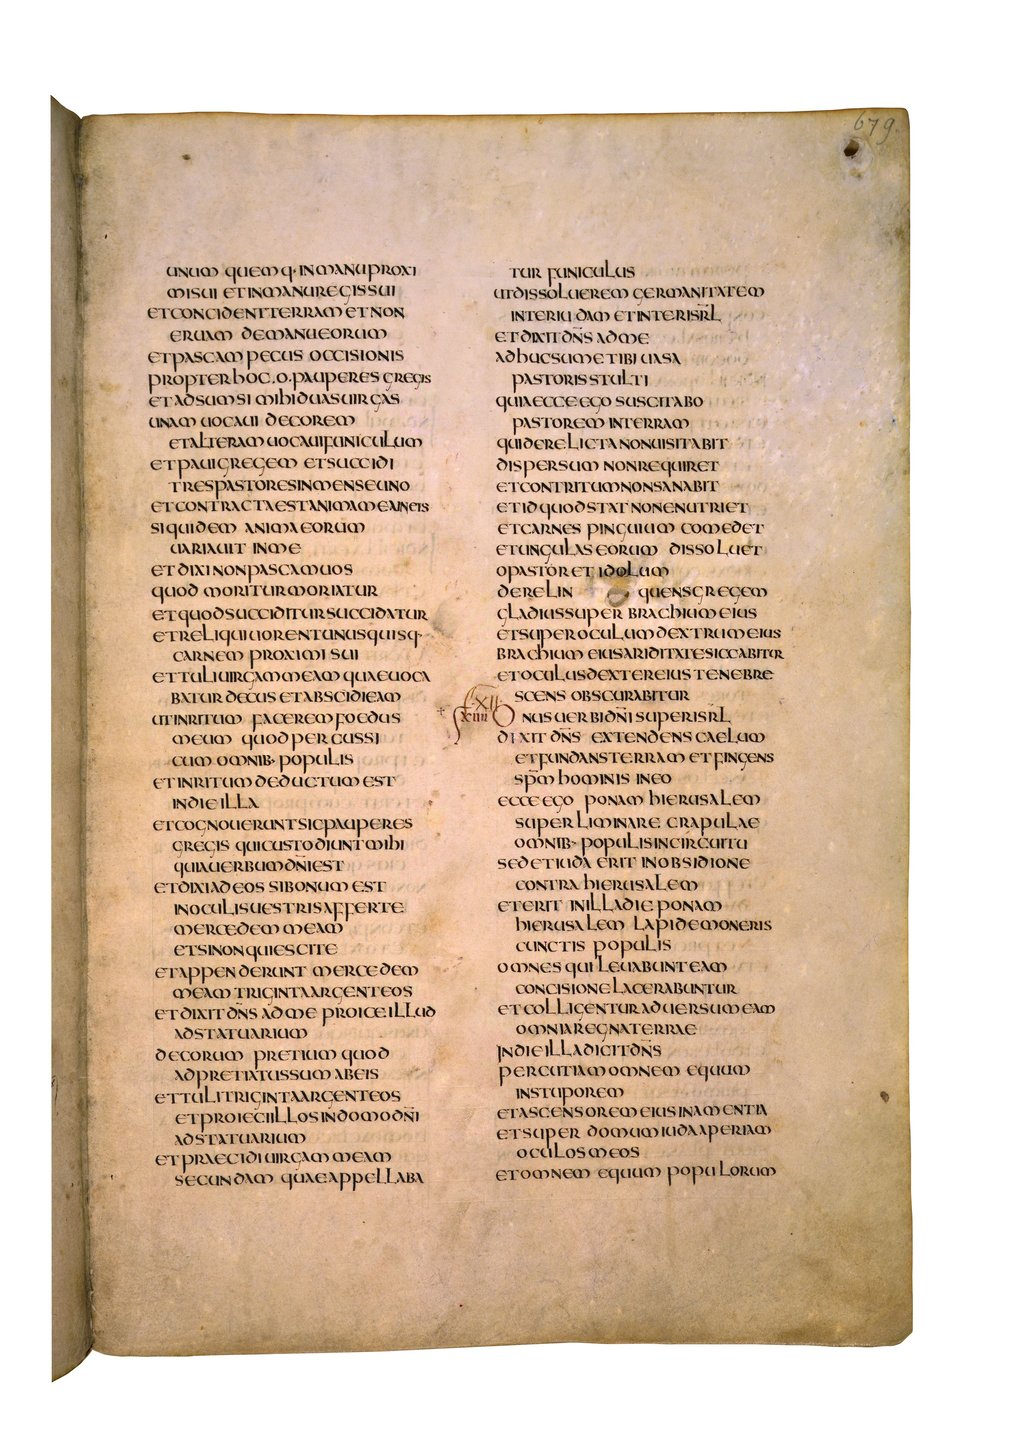 679.
unum quemq· in manu proxi
mi sui et in manu regis sui
et concident terram et non
eruam de manu eorum
et pascam pecus occisionis
propter hoc . o . pauperes gregis
et adsumsi mihi duas uirgas
unam uocaui decorem
et alteram uocaui funiculum
et paui gregem et succidi
tres pastores in mense uno
et contracta est anima mea in eis
siquidem anima eorum
uariauit in me
et dixi non pascam uos
quod moritur moriatur
et quod succiditur succidatur
et reliqui uorent unusquisq·
carnem proximi sui
et tuli uirgam meam quae uoca
batur decus et abscidi eam
ut inritum facerem foedus
meum quod percussi
cum omnib· populis
et inritum deductum est
in die illa
et cognouerunt sic pauperes
gregis qui custodiunt mihi
quia uerbum dn̄i est
et dixi ad eos si bonum est
in oculis uestris afferte
mercedem meam
et si non quiescite
et appenderunt mercedem
meam triginta argenteos
et dixit dn̄s ad me proice illud
ad statuarium
decorum pretium quod
adpretiatus sum ab eis
et tuli triginta argenteos
et proieci illos in domo dn̄i
ad statuarium
et praecidi uirgam meam
secundam quae appellaba
tur funiculus
ut dissoluerem germanitatem
inter iudam et inter isrl̄
et dixit dn̄s ad me
adhuc sume tibi uasa
pastoris stulti
quia ecce ego suscitabo
pastorem in terram
qui derelicta non uisitabit
dispersum non requiret
et contritum non sanabit
et id quod stat non enutriet
et carnes pinguium comedet
et ungulas eorum dissoluet
o pastor et idolum
derelin quens gregem
gladius super brachium eius
et super oculum dextrum eius
brachium eius ariditate siccabitur
et oculus dexter eius tenebre
scens obscurabitur
XII
xiiii Onus uerbi dn̄i super isrl̄
dixit dn̄s extendens caelum
et fundans terram et fingens
sp̄m hominis in eo
ecce ego ponam hierusalem
superliminare crapulae
omnib· populis in circuitu
sed et iuda erit in obsidione
contra hierusalem
et erit in illa die ponam
hierusalem lapidem oneris
cunctis populis
omnes qui leuabunt eam
concisione lacerabuntur
et colligentur aduersum eam
omnia regna terrae
in die illa dicit dn̄s
percutiam omnem equum
in stuporem
et ascensorem eius in amentia
et super domum iuda aperiam
oculos meos
et omnem equum populorum